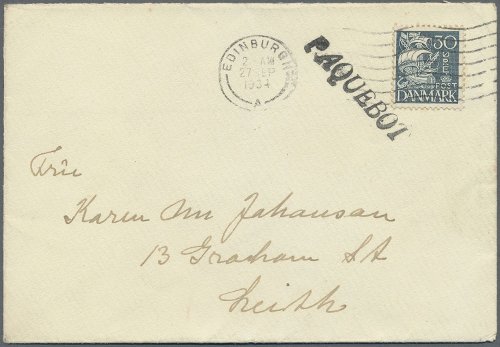 EDINBURGH
2 AM
27 SEP
1934
A
PAQUEBOT
30
POST
DANMARK
Frue
Karen M Johansan
13 Graham St
Leith